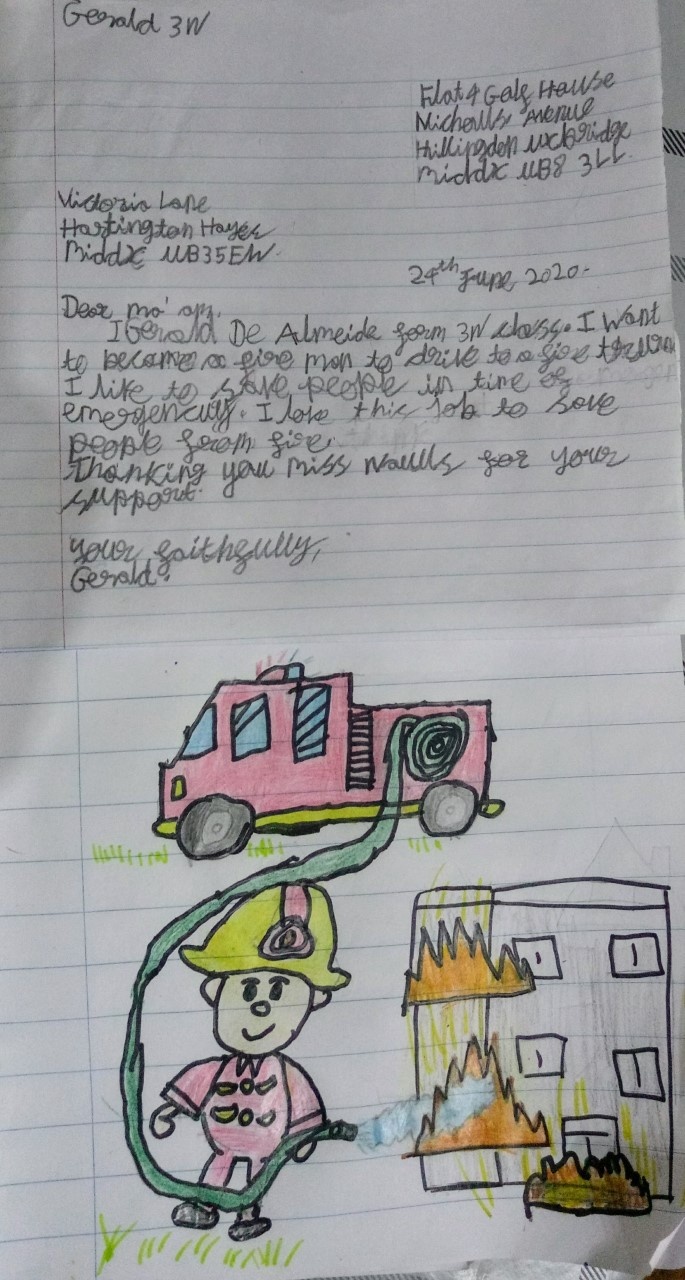 Gerald 3W
Flat 4 Gale House
Nicholls Avenue
Hillingdon uxbridge
middx UB8 3LL
Victoria Lane
Hartington Hayes
Middx UB35EW.
24th June, 2020.
Dear ma'am,
I Gerald De Almeida form 3W class. I want
to became a fire man to drive to a fire
I like to save people in time of
emergency. I love this Job to save
people from fire.
Thanking you Miss for your
support.
your faithfully,
Gerald.